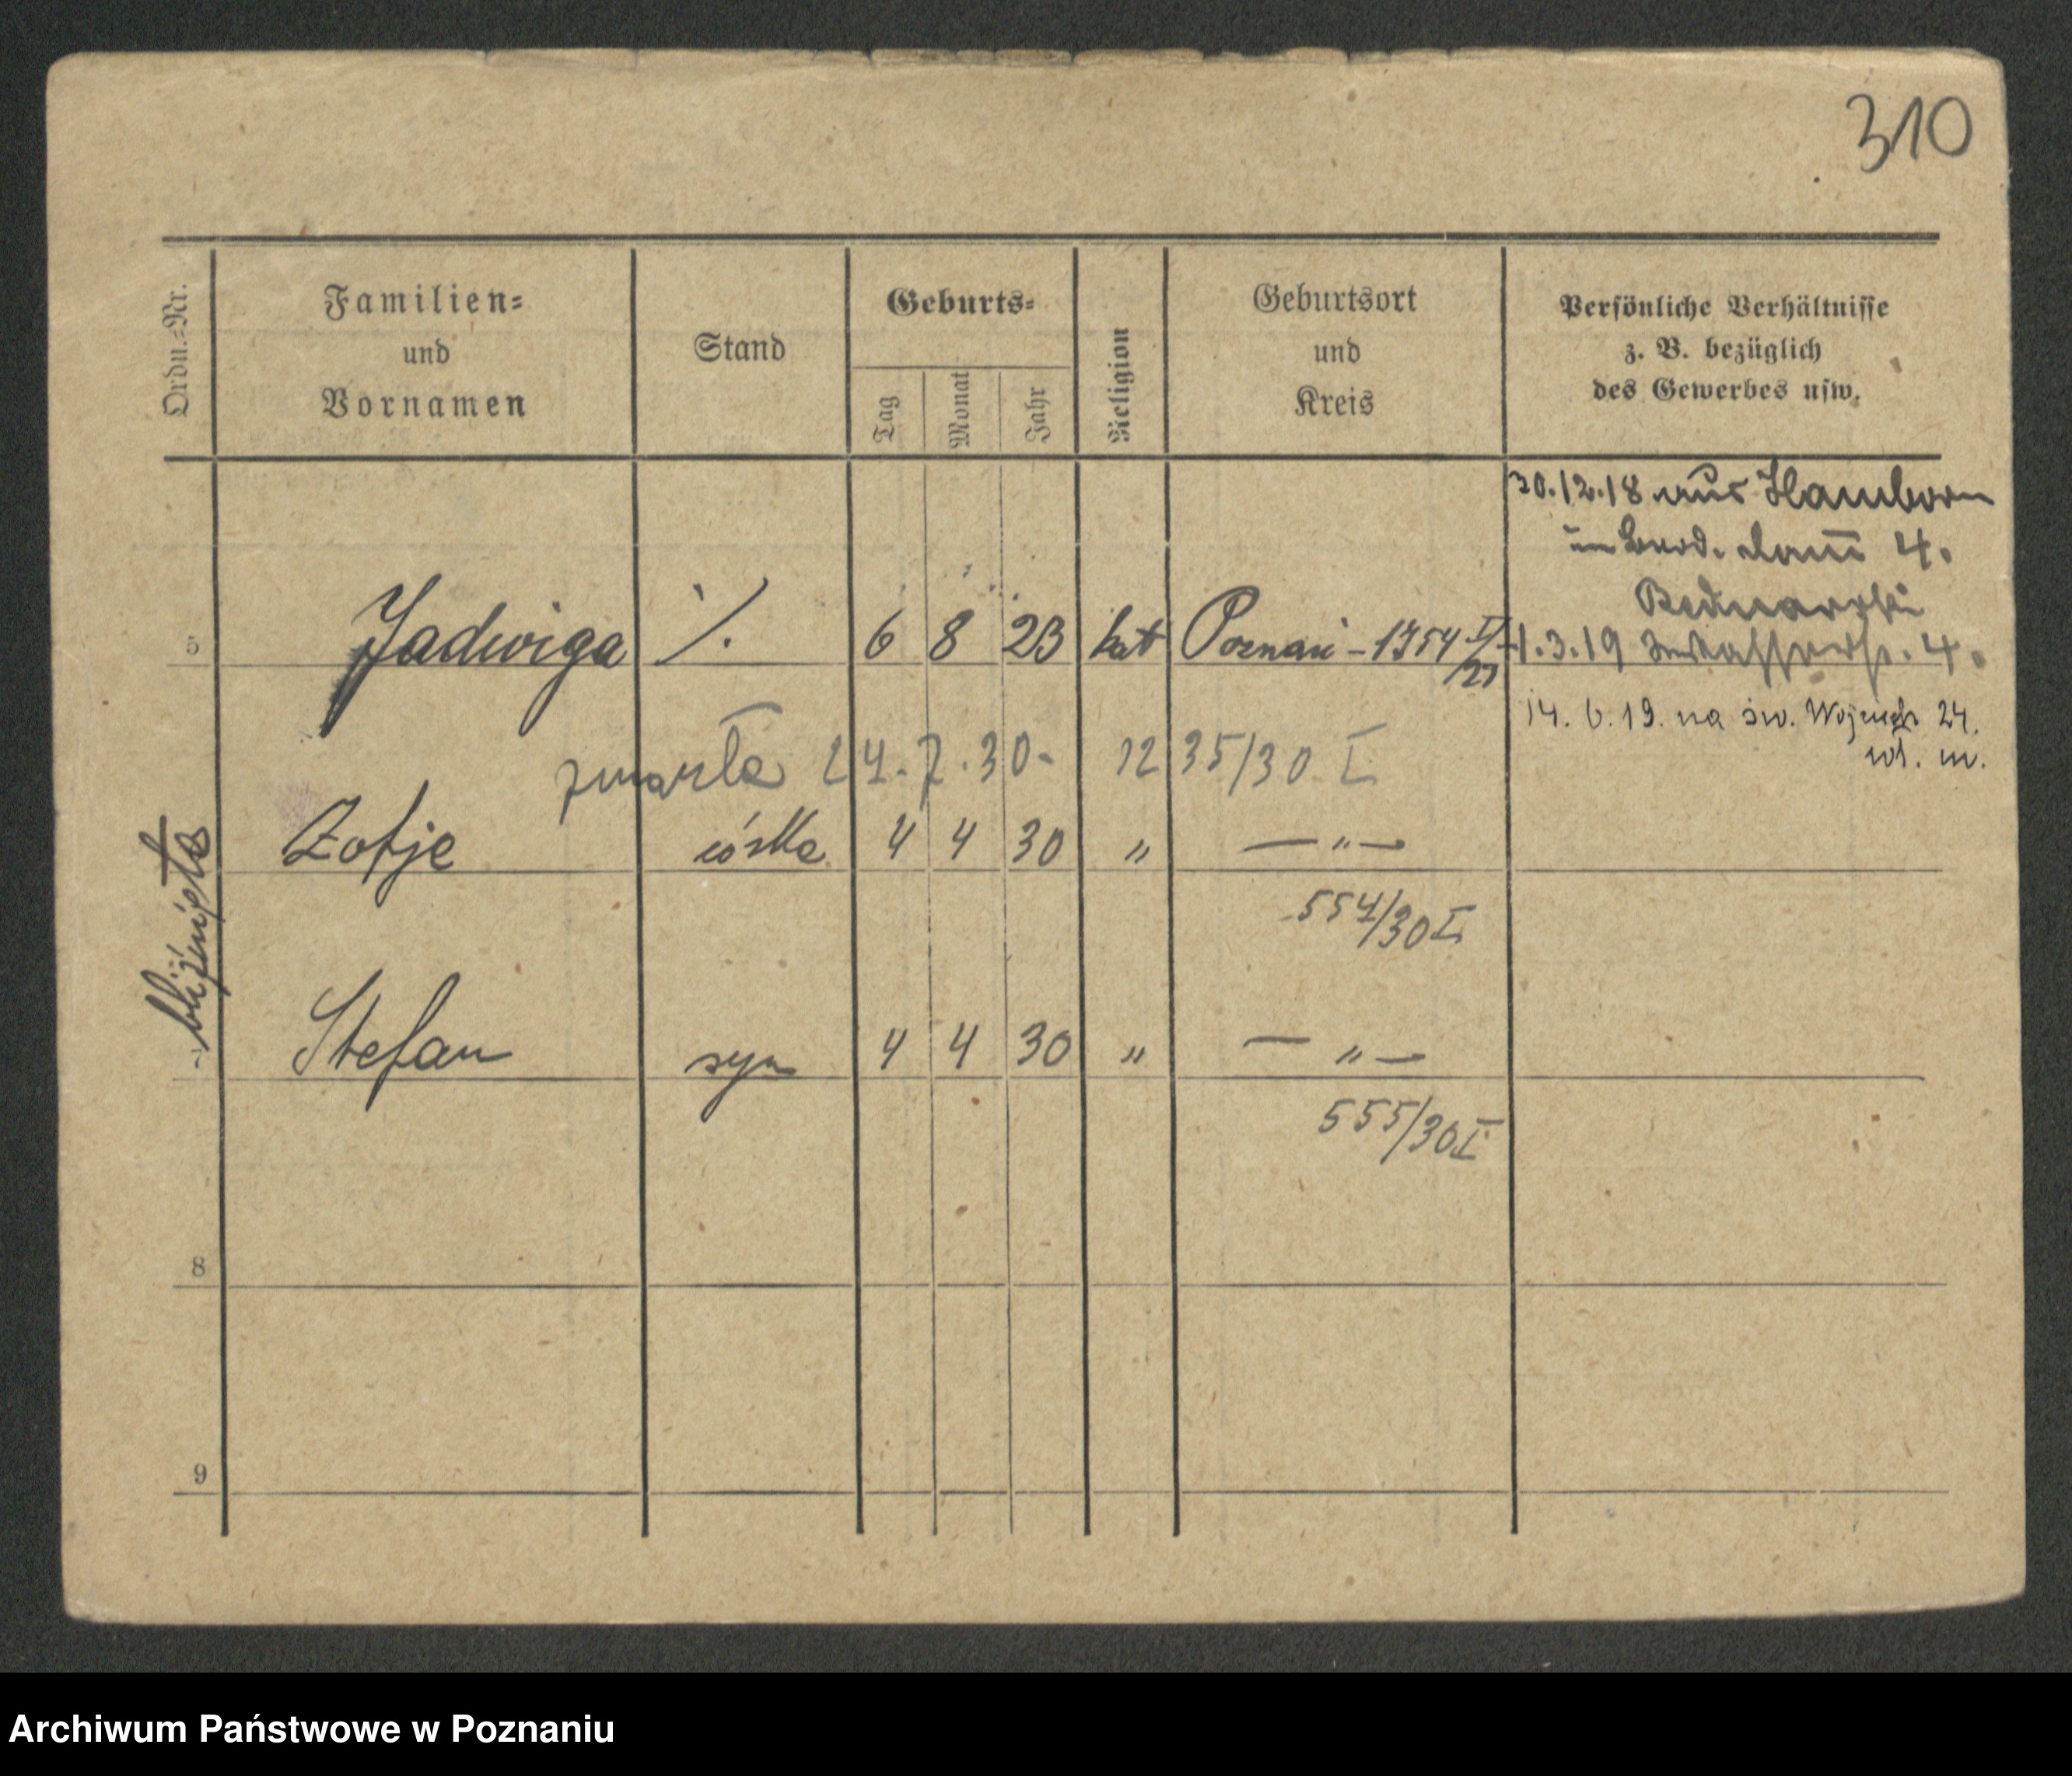 310
Ordn.=Nr.
Familien=
und
Vornamen
Stand
Geburts=
Tag
Monat
Jahr
Religion
Geburtsort
und
Kreis
Persönliche Verhältnisse
z. B. bezüglich
des Gewerbes usw.
30.12.18 aus Hamborn
4.
Bednarski
5 Jadwiga ·/. 6 8 23 kat Poznań - 1954 I/23
1.3.19 4.
14. 6. 19. na św. Wojciech 24.
wł. m.
zmarła 24.7.30- 1235/30 I
bliźnięta
Zofje córka 4 4 30 " — " —
554/30 I
Stefan syn 4 4 30 " — " —
555/30 I
8
9
Archiwum Państwowe w Poznaniu